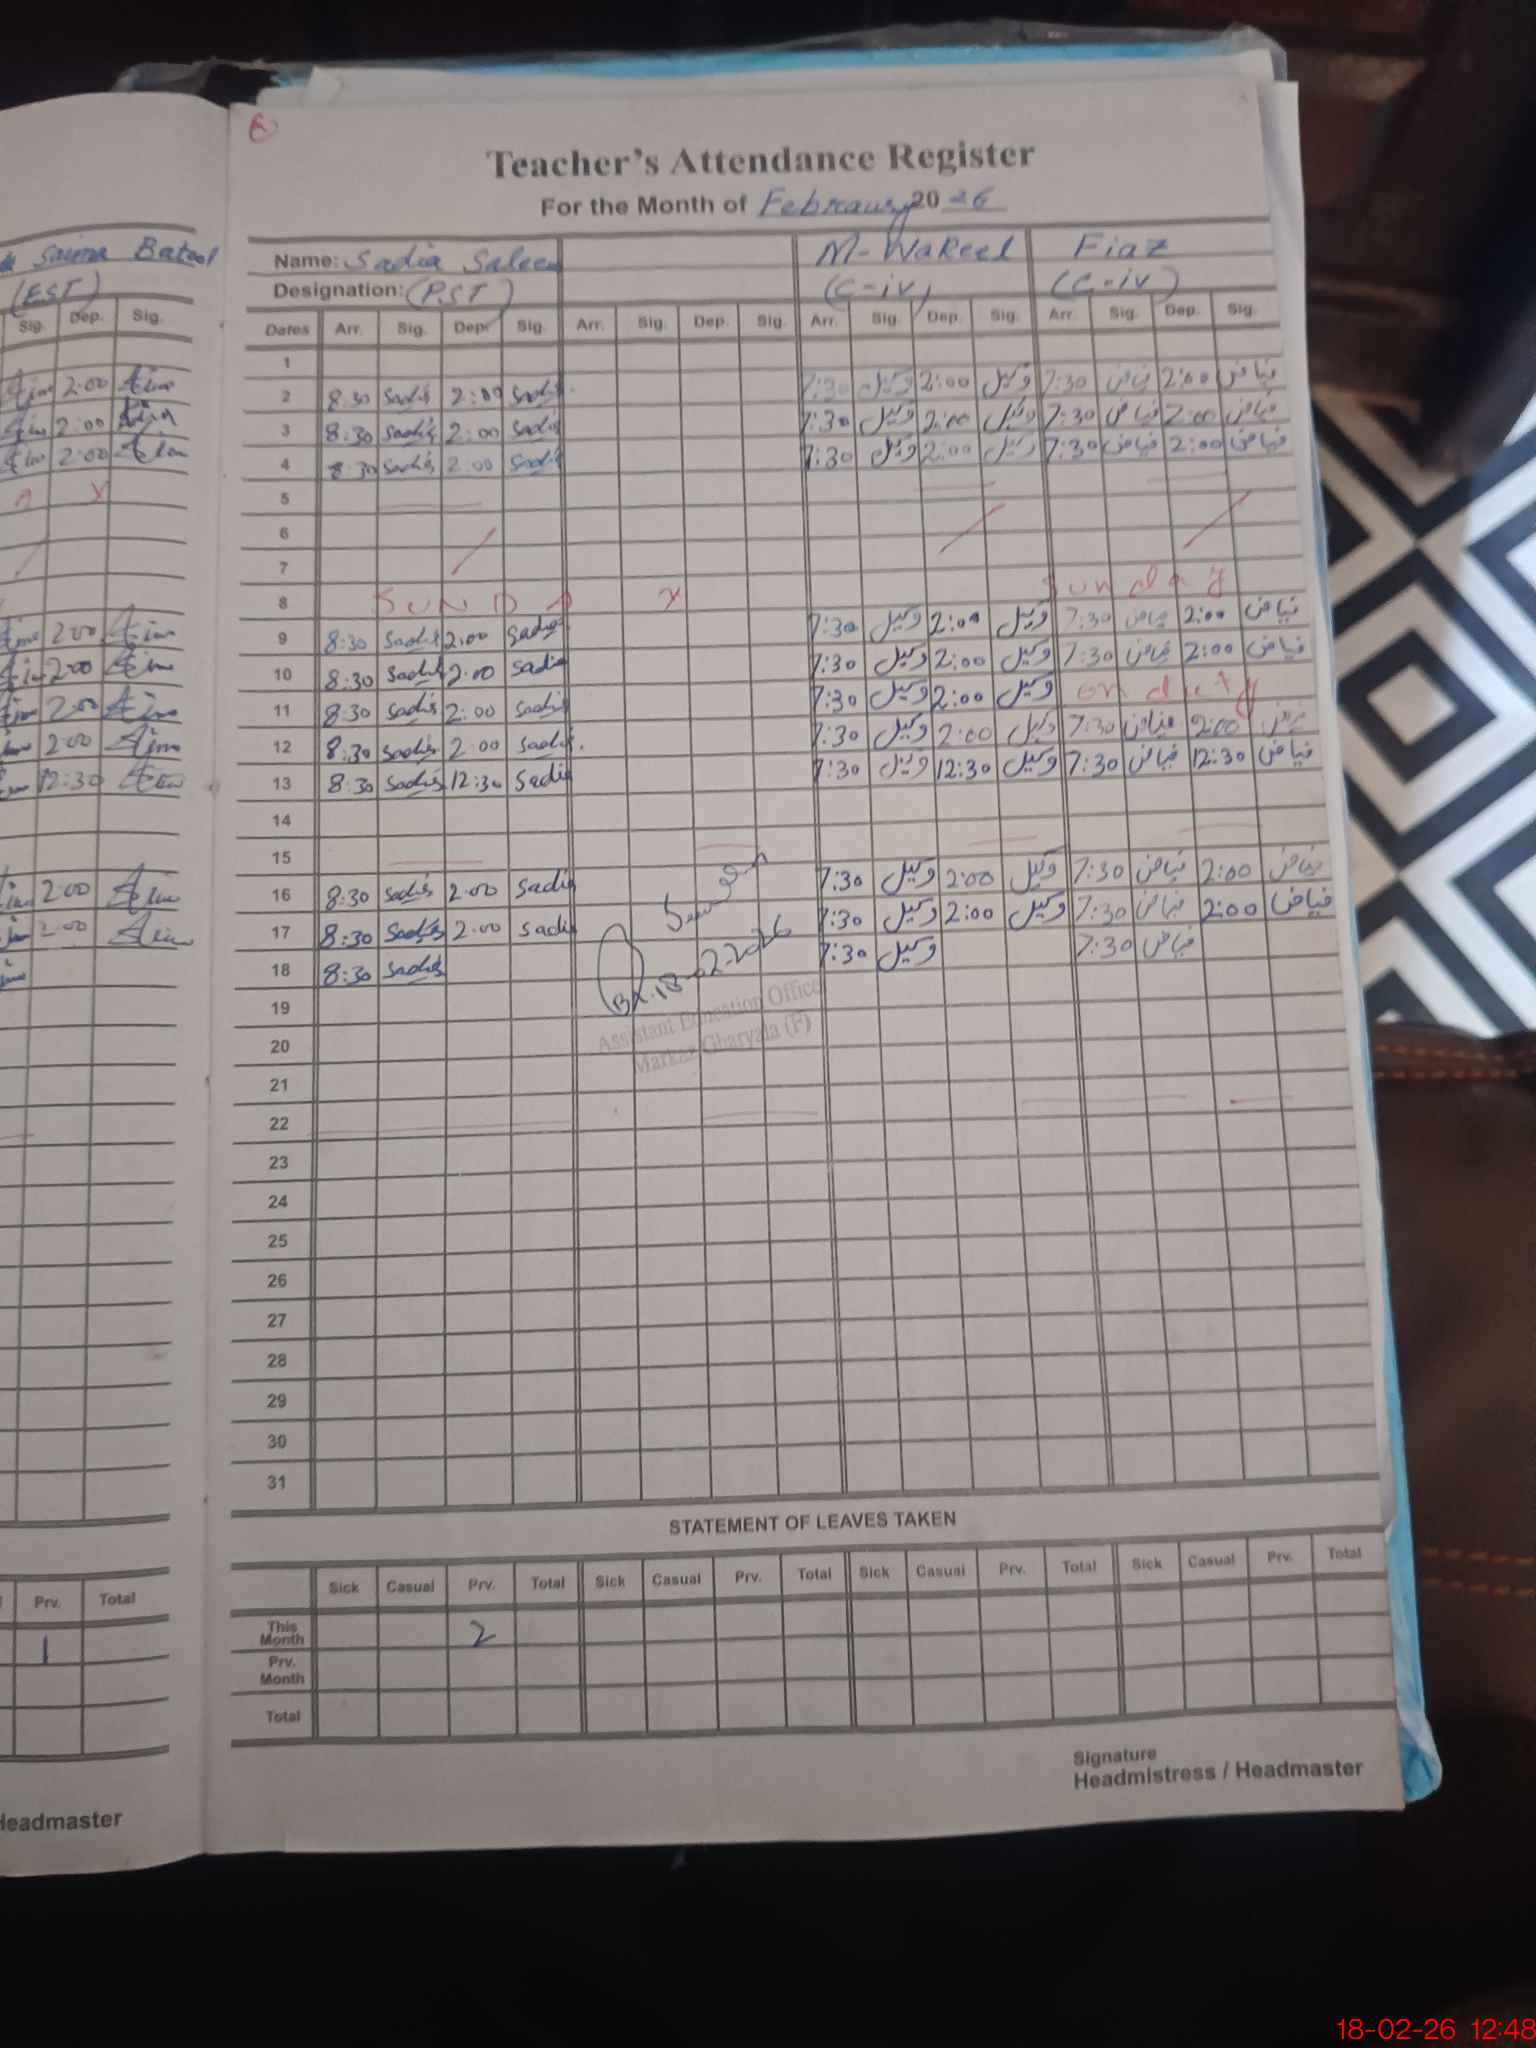 Teacher's Attendance Register
For the Month of Febrauary 20 26
Saima Batool
(EST)
Sig. Dep. Sig.
2:00
2:00
2:00
A Y
2:00
2:00
2:00
2:00
12:30
2:00
2:00
Name: Sadia Saleem M-Wakeel Fiaz
Designation: (P.S.T) (C-iv) (C-iv)
Dates Arr. Sig. Dep. Sig. Arr. Sig. Dep. Sig. Arr. Sig. Dep. Sig. Arr. Sig. Dep. Sig.
1
2 8:30 Sadia 2:00 Sadia 7:30 وکیل 2:00 وکیل 7:30 فیاض 2:00 فیاض
3 8:30 Sadia 2:00 Sadia 7:30 وکیل 2:00 وکیل 7:30 فیاض 2:00 فیاض
4 8:30 Sadia 2:00 Sadia 7:30 وکیل 2:00 وکیل 7:30 فیاض 2:00 فیاض
5
6
7
8 SUNDAY Sunday
9 8:30 Sadia 2:00 Sadia 7:30 وکیل 2:00 وکیل 7:30 فیاض 2:00 فیاض
10 8:30 Sadia 2:00 Sadia 7:30 وکیل 2:00 وکیل 7:30 فیاض 2:00 فیاض
11 8:30 Sadia 2:00 Sadia 7:30 وکیل 2:00 وکیل on duty
12 8:30 Sadia 2:00 Sadia 7:30 وکیل 2:00 وکیل 7:30 فیاض 2:00 فیاض
13 8:30 Sadia 12:30 Sadia 7:30 وکیل 12:30 وکیل 7:30 فیاض 12:30 فیاض
14
15
16 8:30 Sadia 2:00 Sadia 7:30 وکیل 2:00 وکیل 7:30 فیاض 2:00 فیاض
17 8:30 Sadia 2:00 Sadia 7:30 وکیل 2:00 وکیل 7:30 فیاض 2:00 فیاض
18 8:30 Sadia 7:30 وکیل 7:30 فیاض
18-02-2026
Assistant Education Office
Markaz Gharyala (F)
19
20
21
22
23
24
25
26
27
28
29
30
31
STATEMENT OF LEAVES TAKEN
Sick Casual Prv. Total Sick Casual Prv. Total Sick Casual Prv. Total Sick Casual Prv. Total
This Month 2
Prv. Month
Total
Prv. Total
1
Signature
Headmistress / Headmaster
Headmaster
18-02-26 12:48